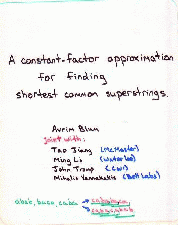 A constant-factor approximation
for finding
shortest common superstrings.
Avrim Blum
joint with:
Tao Jiang (McMaster)
Ming Li (Waterloo)
John Tromp (CWI)
Mihalis Yannakakis (Bell Labs)